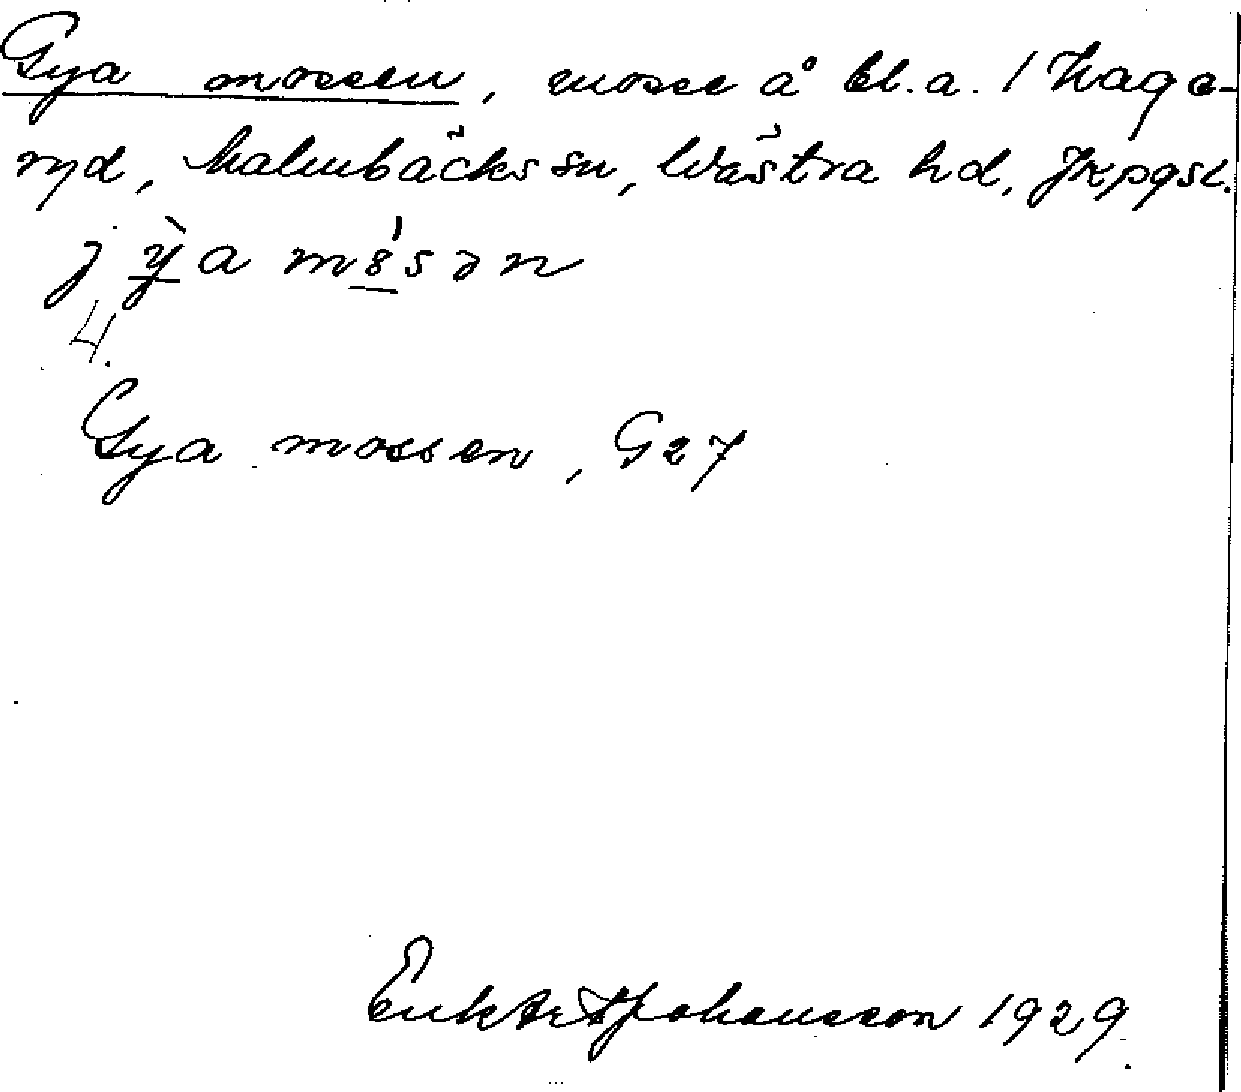 Gya mossen, mosse å bl.a. 1 Haga-
ryd, Malmbäcks sn, Västra hd, Jkpgsl.
j ỳ a m 8́ s ə n
4.
Gya mossen, G27
Johansson 1929.